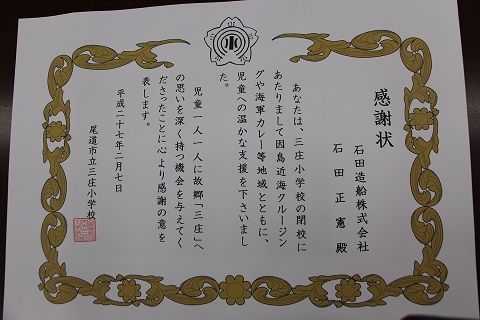 小
感謝状
石田造船株式会社
石田正寛殿
あなたは、三庄小学校の閉校に
あたりまして因島近海クルージン
グや海軍カレー等地域とともに、
児童への温かな支援を下さいまし
た。
児童一人一人に故郷「三庄」へ
の思いを深く持つ機会を与えてく
ださったことに心より感謝の意を
表します。
平成二十七年二月七日
尾道市立三庄小学校